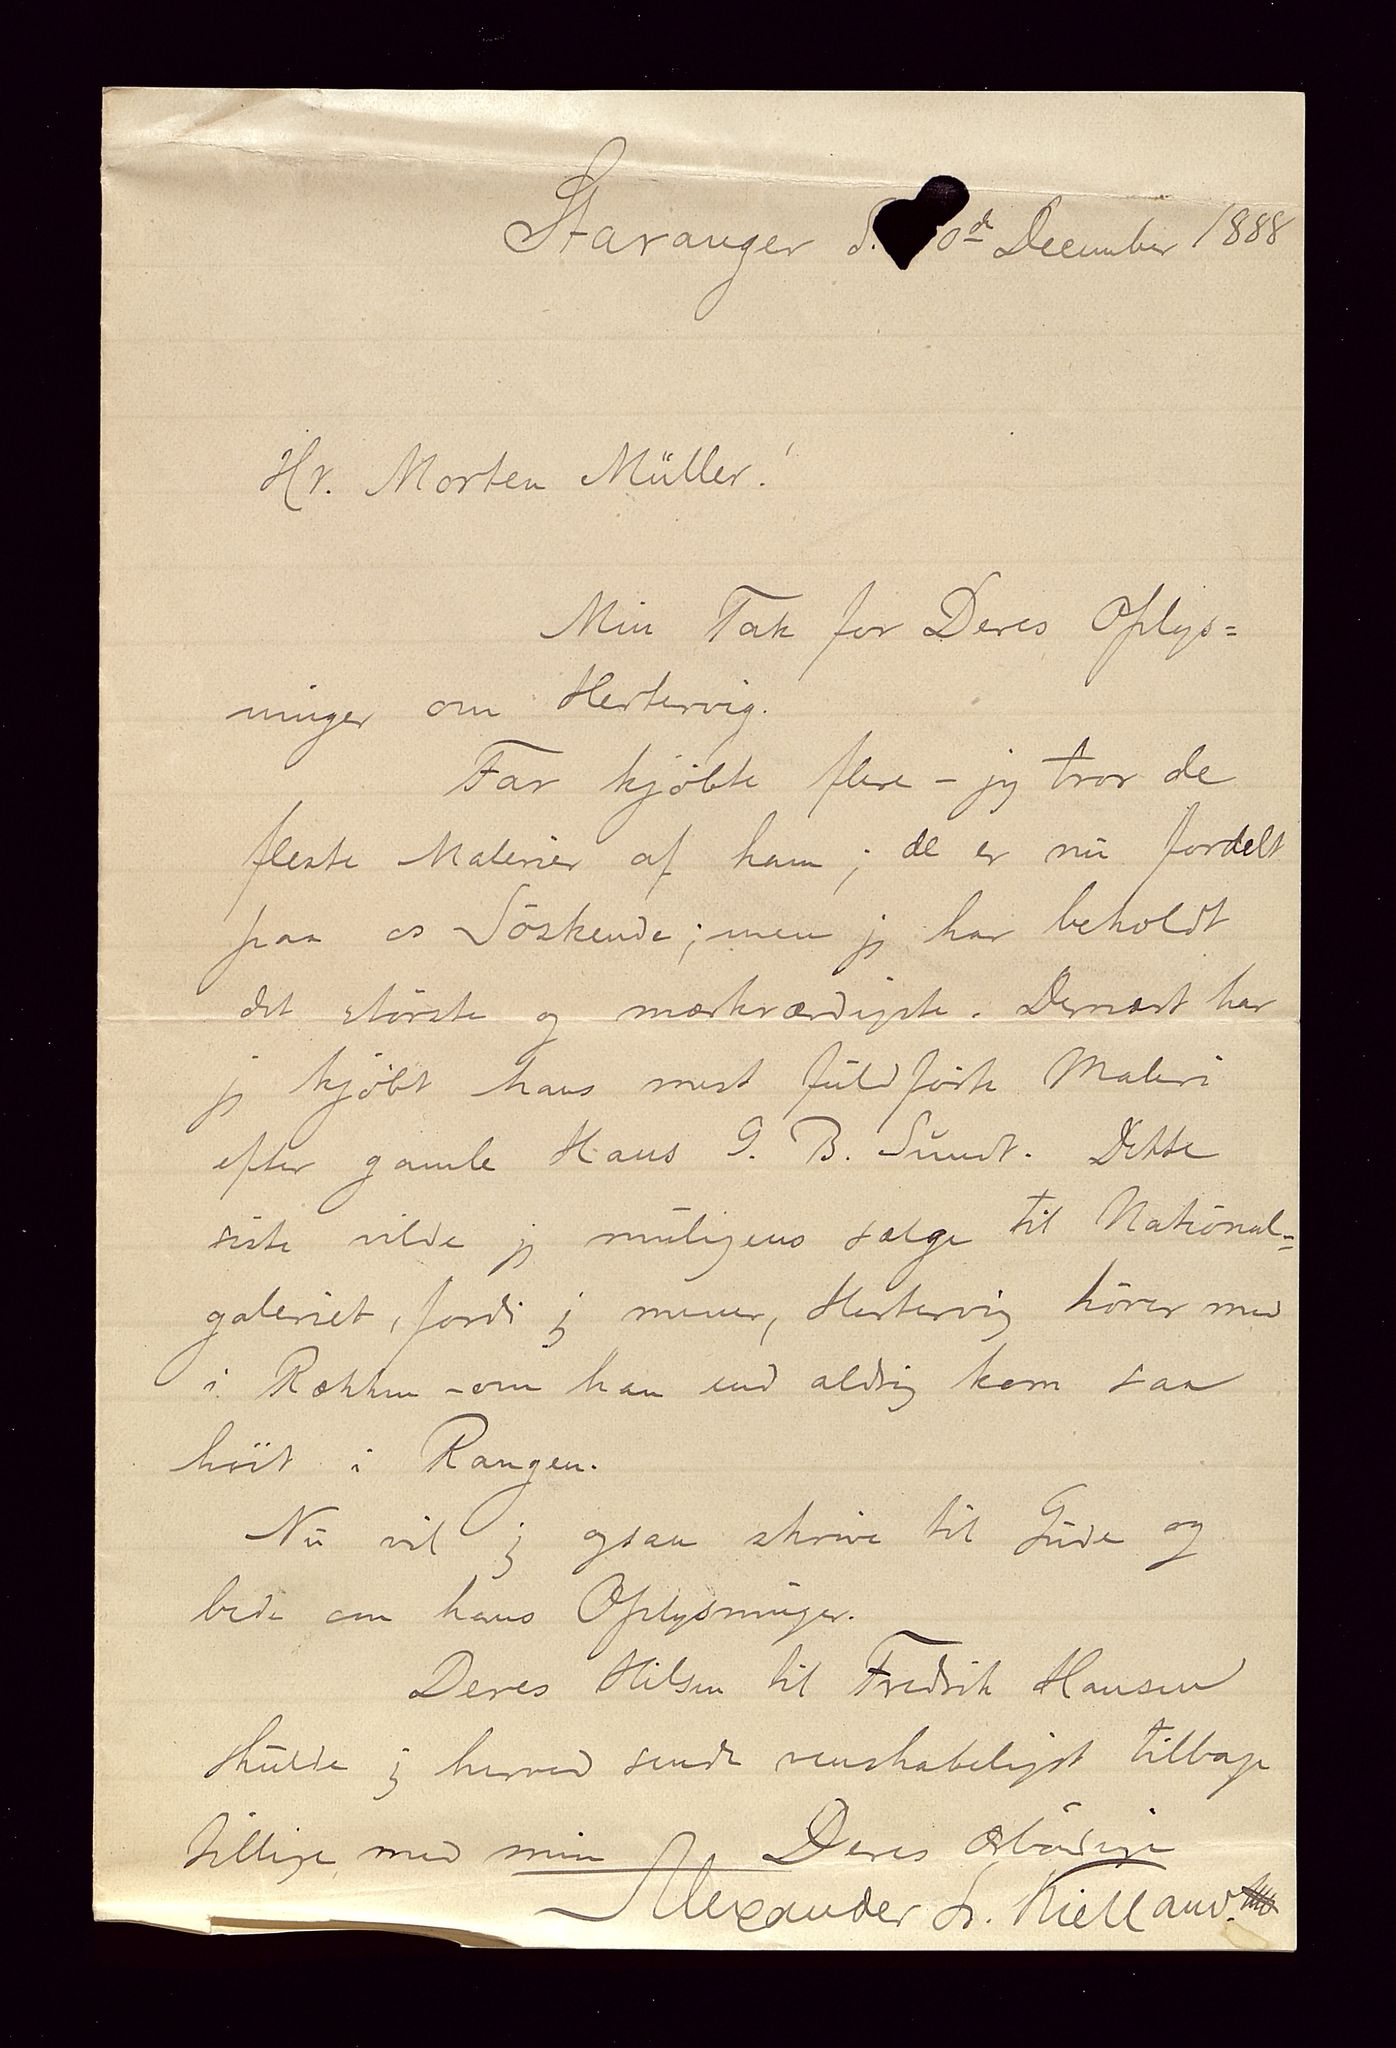 Stavanger d. 0de December 1888
Hr. Morten Müller!
Min Tak for Deres Oplys=
ninger om Hertervig.
Far kjöbte flere - jeg tror de
fleste Malerier af ham; de er nu fordelt
paa os Söskende; men jeg har beholdt
det störste og mærkværdigste. Dernæst har
jeg kjöbt hans mest fuldförte Maleri
efter gamle Hans G. B. Sundt. Dette
siste vilde jeg muligens sælge til National=
galeriet, fordi jeg mener, Hertervig hörer med
i Rækken - om han end aldrig kom saa
höit i Rangen.
Nu vil jeg ogsaa skrive til Gude og
bede om hans Oplysninger.
Deres Hilsen til Fredrik Hansen
skulde jeg herved sende venskabeligst tilbage
tillige med min Deres ærbödige
Alexander L. Kielland.